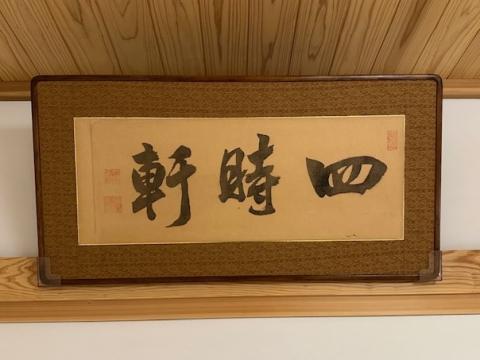 四時軒